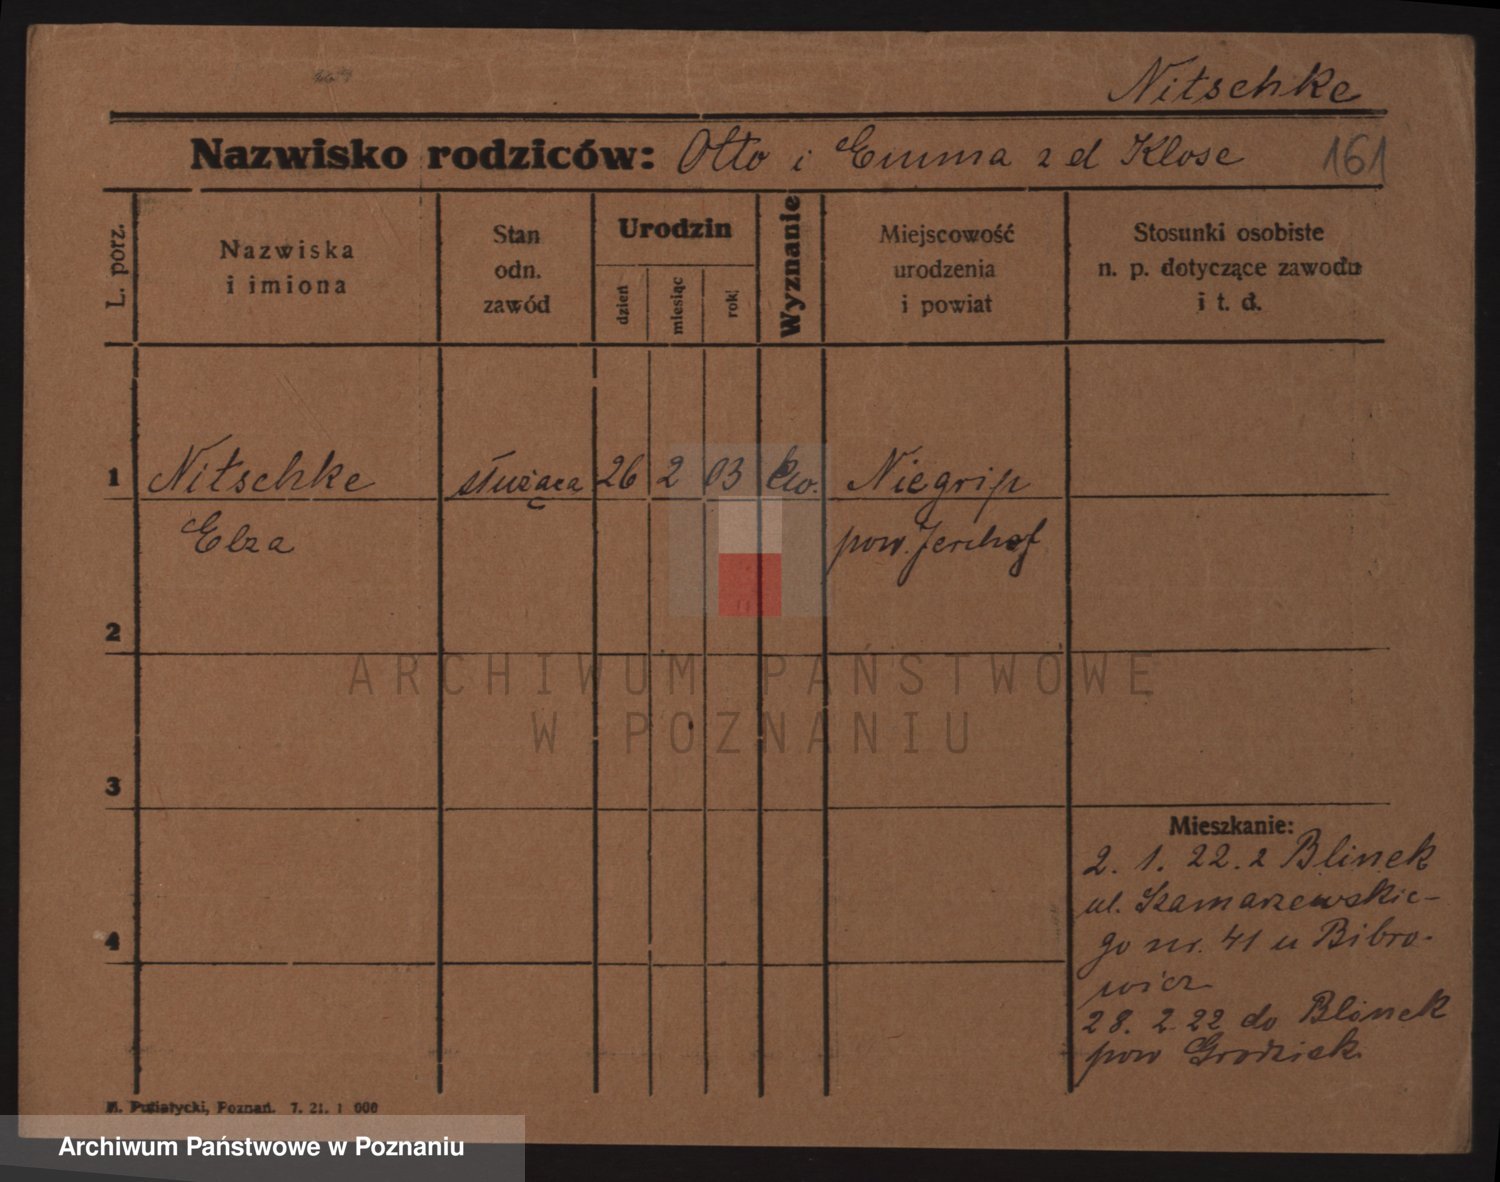 Nitschke
Nazwisko rodziców: Otto i Emma z d Klose 161
L. porz.
Nazwiska
i imiona
Stan
odn.
zawód
Urodzin
dzień
miesiąc
rok
Wyznanie
Miejscowość
urodzenia
i powiat
Stosunki osobiste
n. p. dotyczące zawodu
i t. d.
1 Nitschke służąca 26 2 03 Ew. Niegrip
Elza pow. Jerichof
2
3
4
ARCHIWUM PAŃSTWOWE
W POZNANIU
Mieszkanie:
2. 1. 22. z Blinek
ul. Szamarzewskie-
go nr. 41 u Bibro-
wicz
28. 2. 22 do Blinek
pow Grodzisk
M. Putiatycki, Poznań. 7. 21. 1 000
Archiwum Państwowe w Poznaniu